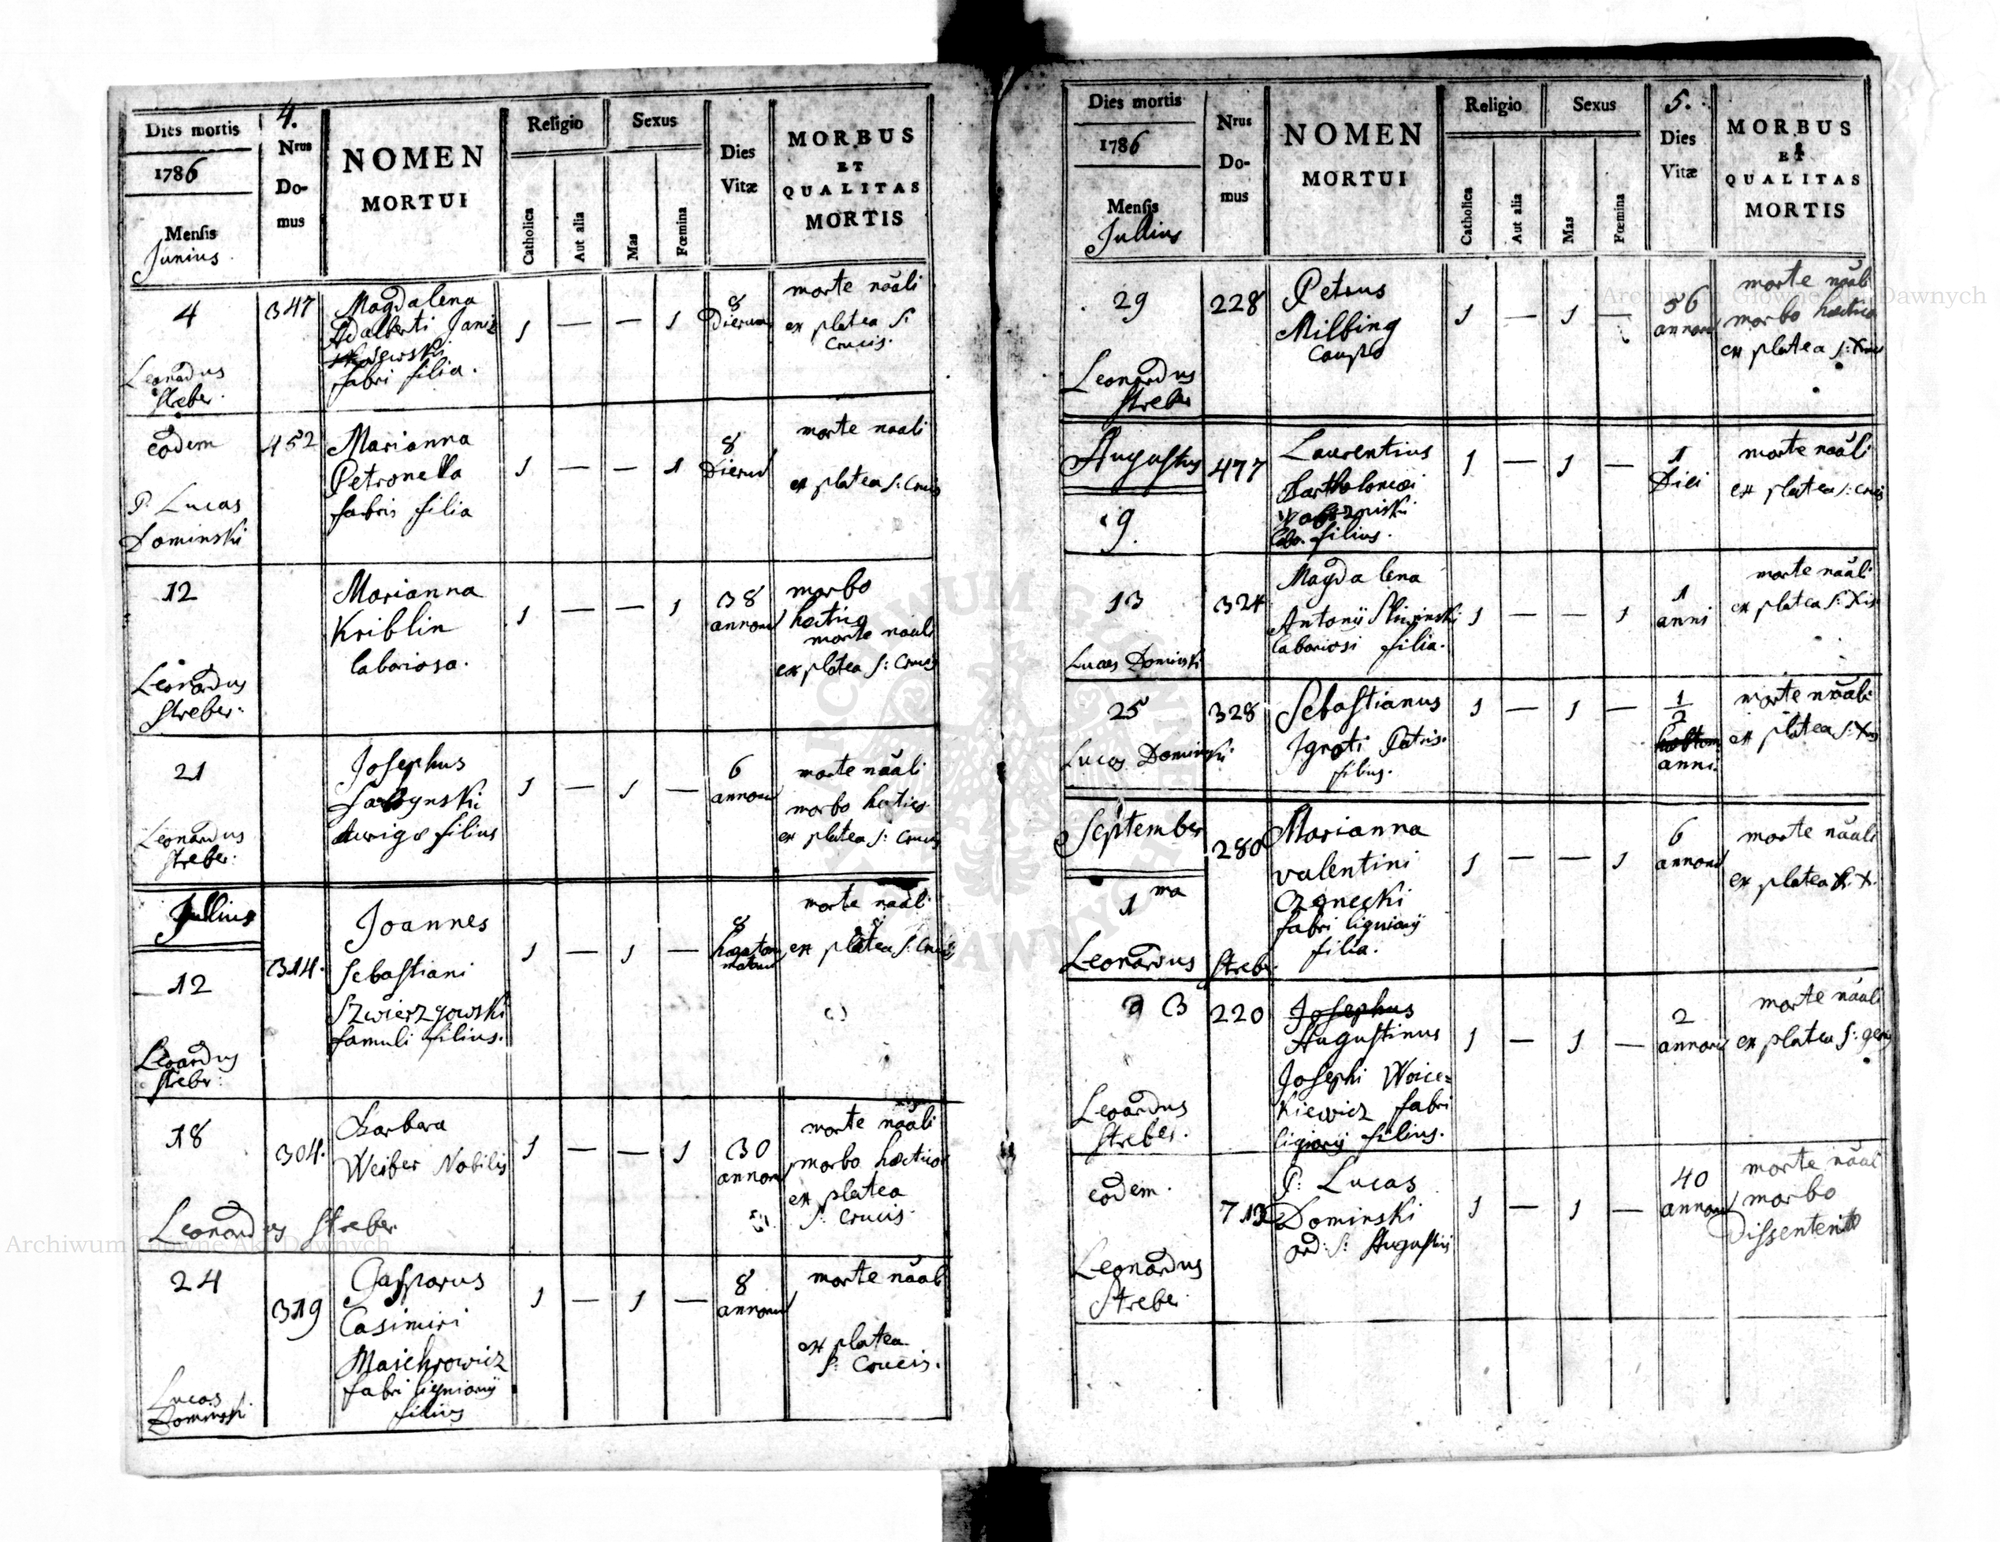 4.
Dies mortis
1786
Mensis
Junius
Nrus
Do-
mus
NOMEN
MORTUI
Religio
Catholica
Aut alia
Sexus
Mas
Fœmina
Dies
Vitæ
MORBUS
ET
QUALITAS
MORTIS
4
Leonardus
Streber
347
Magdalena
Adalberti
fabri filia.
1 — — 1
8
Dierum
morte nãali
ex platea S:
Crucis.
eodem
P. Lucas
Dominski
452
Marianna
Petronella
fabri filia
1 — — 1
8
Dierum
morte naali
ex platea S: Crucis
12
Leonardus
Streber.
Marianna
Kriblin
laboriosa.
1 — — 1
38
annorum
morbo
hectico
morte naali
ex platea S: Crucis
21
Leonardus
Streber:
Josephus
Aurigæ filius
1 — 1 —
6
annorum
morte nãali
morbo hectico
ex platea S: Crucis
Jullius
12
Leoardus
Streber:
314.
Joannes
Sebastiani
Szwierzgowski
famuli filius.
1 — 1 —
8
morte naali
ex platea S: Crucis
18
Leonardus Streber
304.
Barbara
Weiber Nobilis
1 — — 1
30
annorum
morte naali
morbo hectico
ex platea
S: Crucis.
24
Lucas
Dominski
319
Casparus
Casimiri
Maichrowicz
fabri ligniarij
filius
1 — 1 —
8
annorum
morte nãali
ex platea
S: Crucis.
5.
Dies mortis
1786
Mensis
Jullius
Nrus
Do-
mus
NOMEN
MORTUI
Religio
Catholica
Aut alia
Sexus
Mas
Fœmina
Dies
Vitæ
MORBUS
ET
QUALITAS
MORTIS
29
Leonardus
Streber
228
Petrus
Milbing
Caupo
1 — 1 —
56
annorum
morte nãali
morbo hectico
ex platea S: Xcis
Augustus
9.
477
Laurentius
Bartholomæi
filius.
1 — 1 —
1
Diei
morte nãali
ex platea S: Crucis
13
Lucas Dominski
324
Magdalena
Antonij Sliwinski
laboriosi filia.
1 — — 1
1
anni
morte nãali
ex platea S: Xcis
25
Lucas Dominski
328
Sebastianus
Ignoti Patris
filius.
1 — 1 —
1
2
anni.
morte nãali
ex platea S: Xcis
September
1ma
Leonardus Streber
280
Marianna
Valentini
fabri ligniarij
filia.
1 — — 1
6
annorum
morte nãali
ex platea S: X.
3
Leoardus
Streber.
220
Josephus
Augustinus
Josephi Woice=
kiewicz fabri
ligiarij filius.
1 — 1 —
2
annorum
morte nãali
ex platea S:
eodem.
Leonardus
Streber
713
P: Lucas
Dominski
ord: S: Augustini
1 — 1 —
40
annorum
morte nãali
morbo
Archiwum Główne Akt Dawnych
Archiwum Główne Akt Dawnych
ARCHIWUM GŁÓWNE AKT DAWNYCH